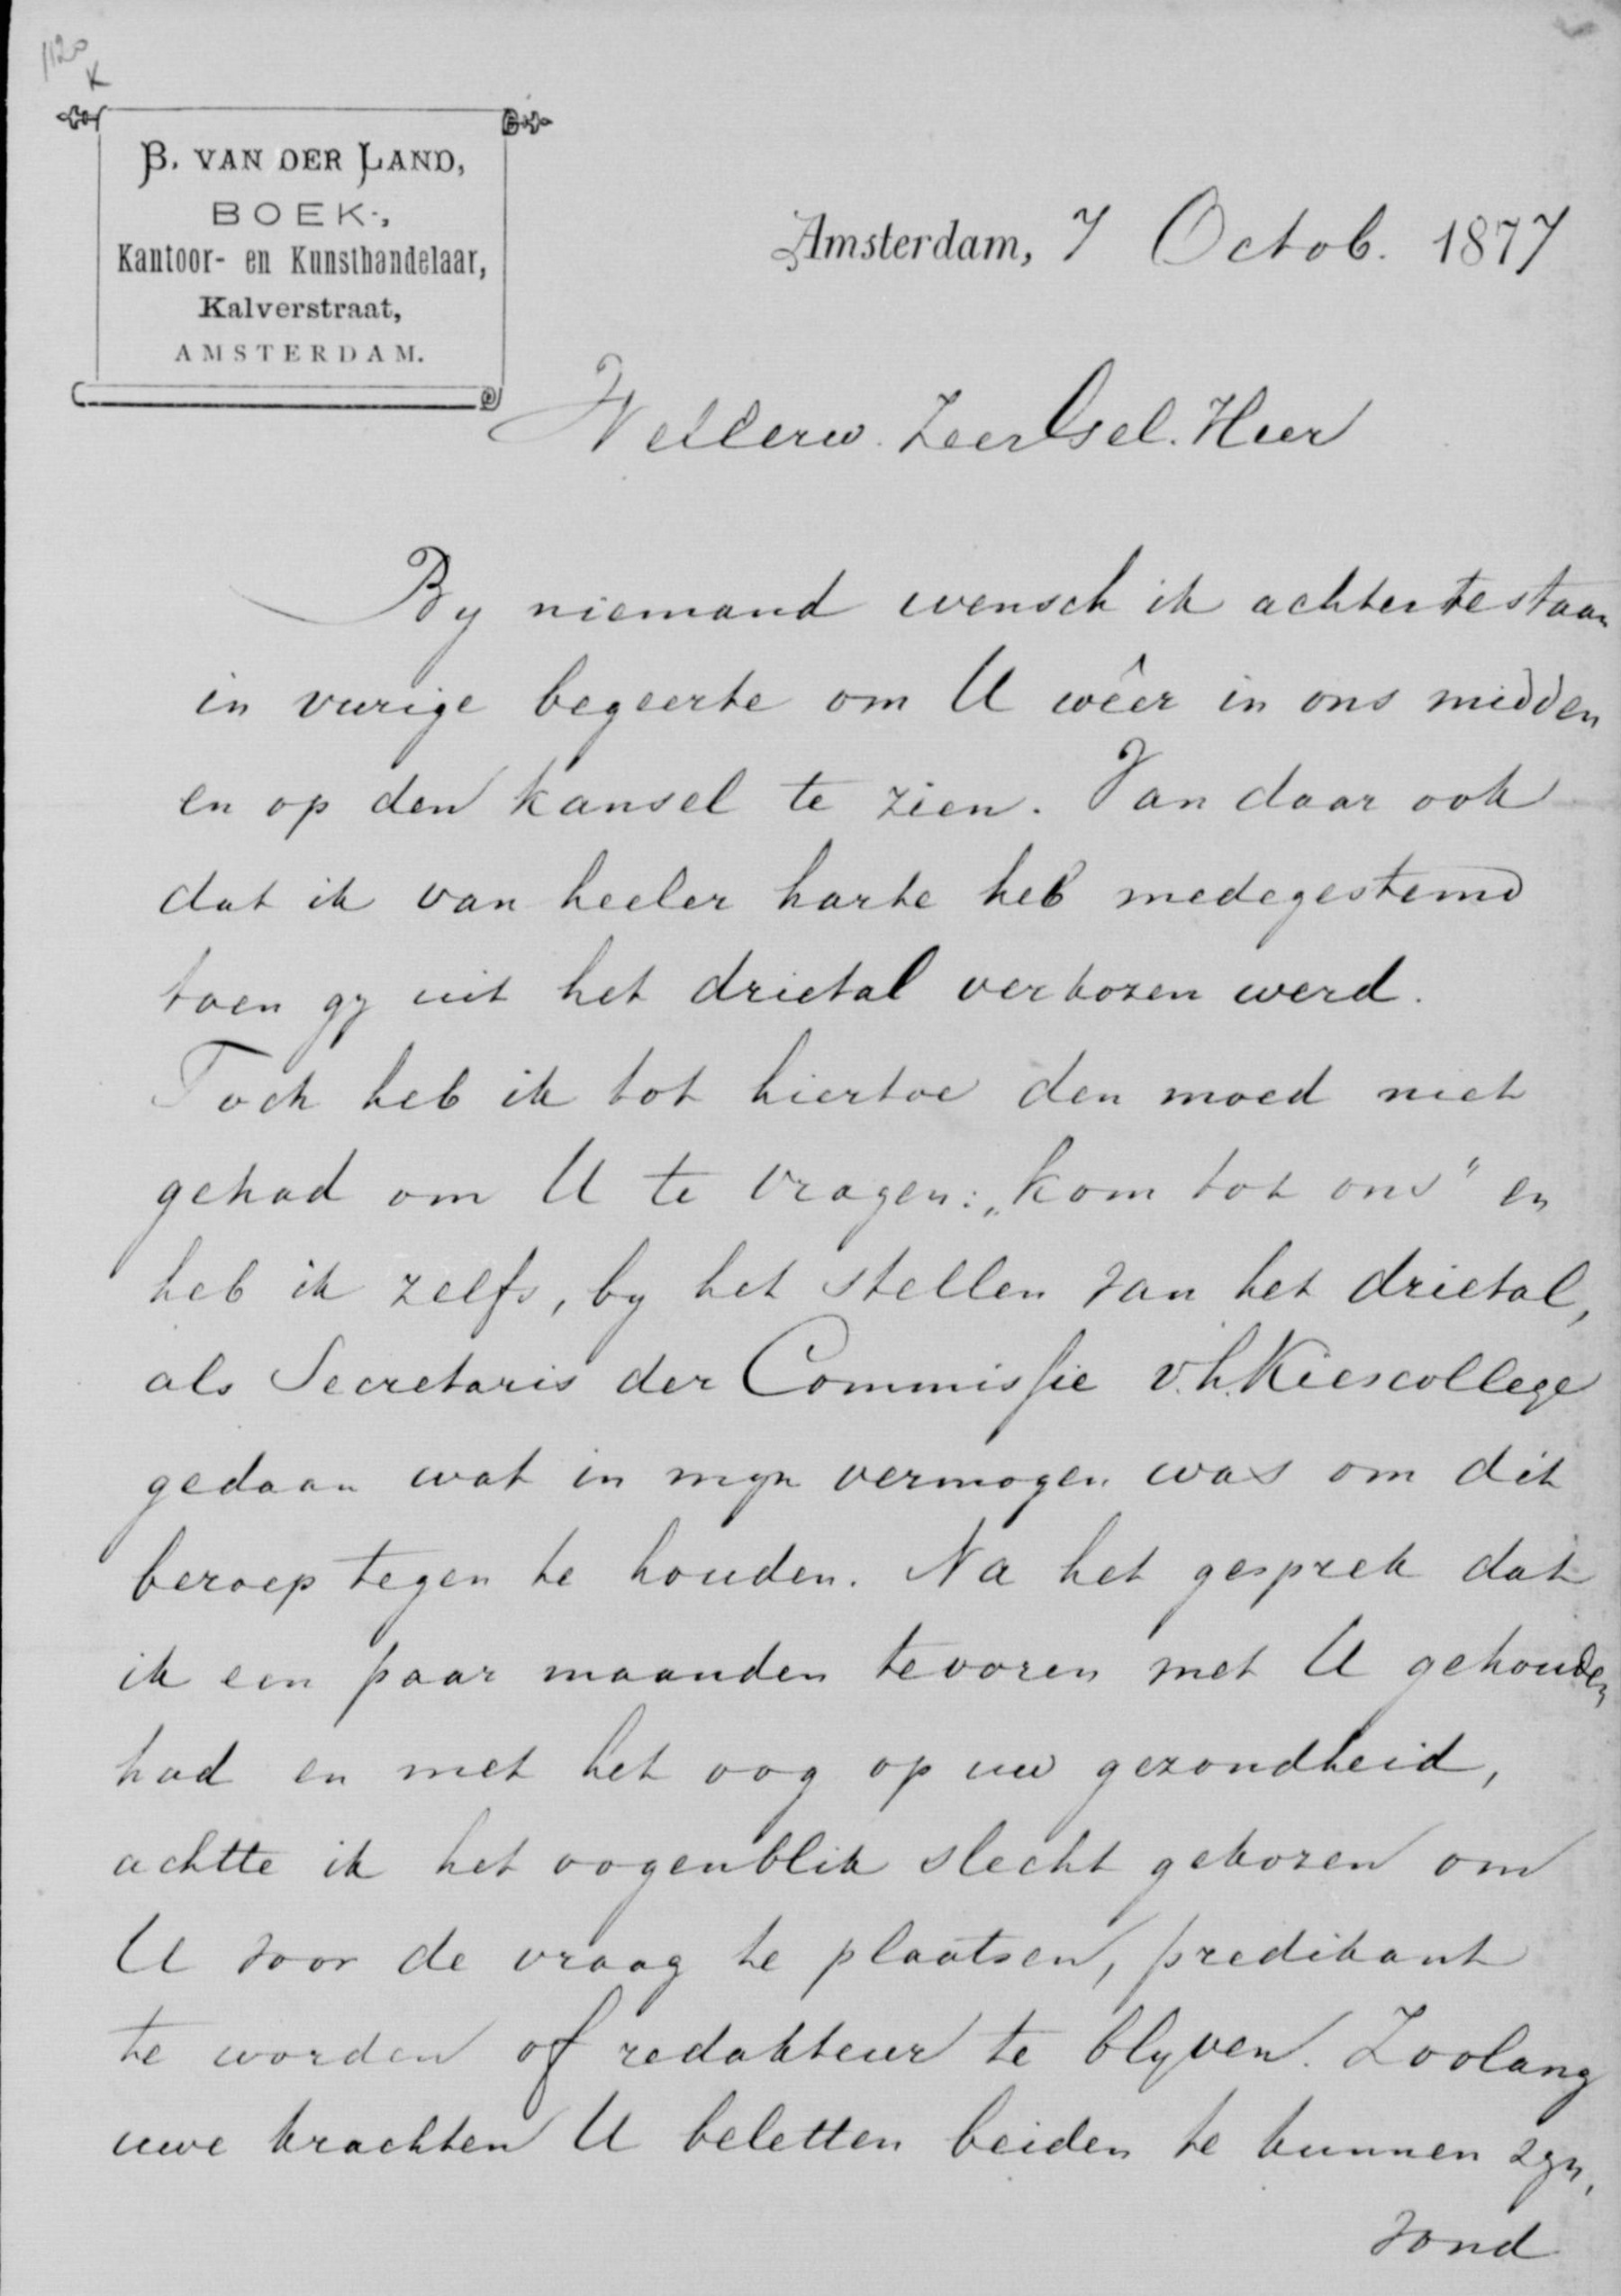 1120
K
B. VAN DER LAND,
BOEK-,
Kantoor- en Kunsthandelaar,
Kalverstraat,
AMSTERDAM.
Amsterdam, 7 Octob. 1877
WelEerw. ZeerGel. Heer
By niemand wensch ik achter te staan
in vurige begeerte om U wêer in ons midden
en op den kansel te zien. Van daar ook
dat ik van heeler harte heb medegestemd
toen gy uit het drietal verkozen werd.
Toch heb ik tot hiertoe den moed niet
gehad om U te vragen: „kom tot ons" en
heb ik zelfs, by het stellen van het drietal,
als Secretaris der Commissie v.h. Kiescollege
gedaan wat in myn vermogen was om dit
beroep tegen te houden. Na het gesprek dat
ik een paar maanden tevoren met U gehouden
had en met het oog op uw gezondheid,
achtte ik het oogenblik slecht gekozen om
U voor de vraag te plaatsen, predikant
te worden of redakteur te blyven. Zoolang
uwe krachten U beletten beiden te kunnen zyn,
vond